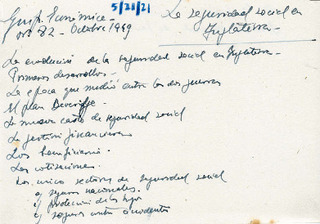 5/21/21
La seguridad social en
Inglaterra.
Económica
nº 82 - Octubre 1949
La evolución de la seguridad social en Inglaterra.
Primeros desarrollos.
La época que medió entre las dos guerras
El plan Beveridge
La nueva carta de seguridad social
La gestión financiera
Los beneficiarios
Las cotizaciones.
Los cinco sectores de seguridad social
a) seguros nacionales.
c) seguros contra accidentes